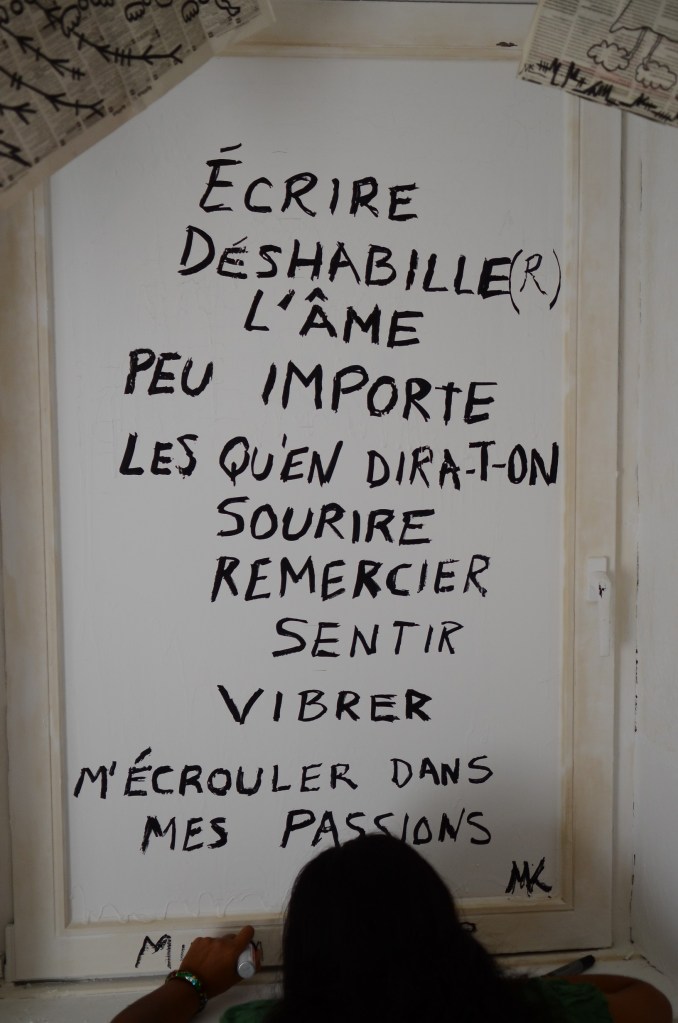 ÉCRIRE
DÉSHABILLE(R)
L'ÂME
PEU IMPORTE
LES QU'EN DIRA-T-ON
SOURIRE
REMERCIER
SENTIR
VIBRER
M'ÉCROULER DANS
MES PASSIONS
MK